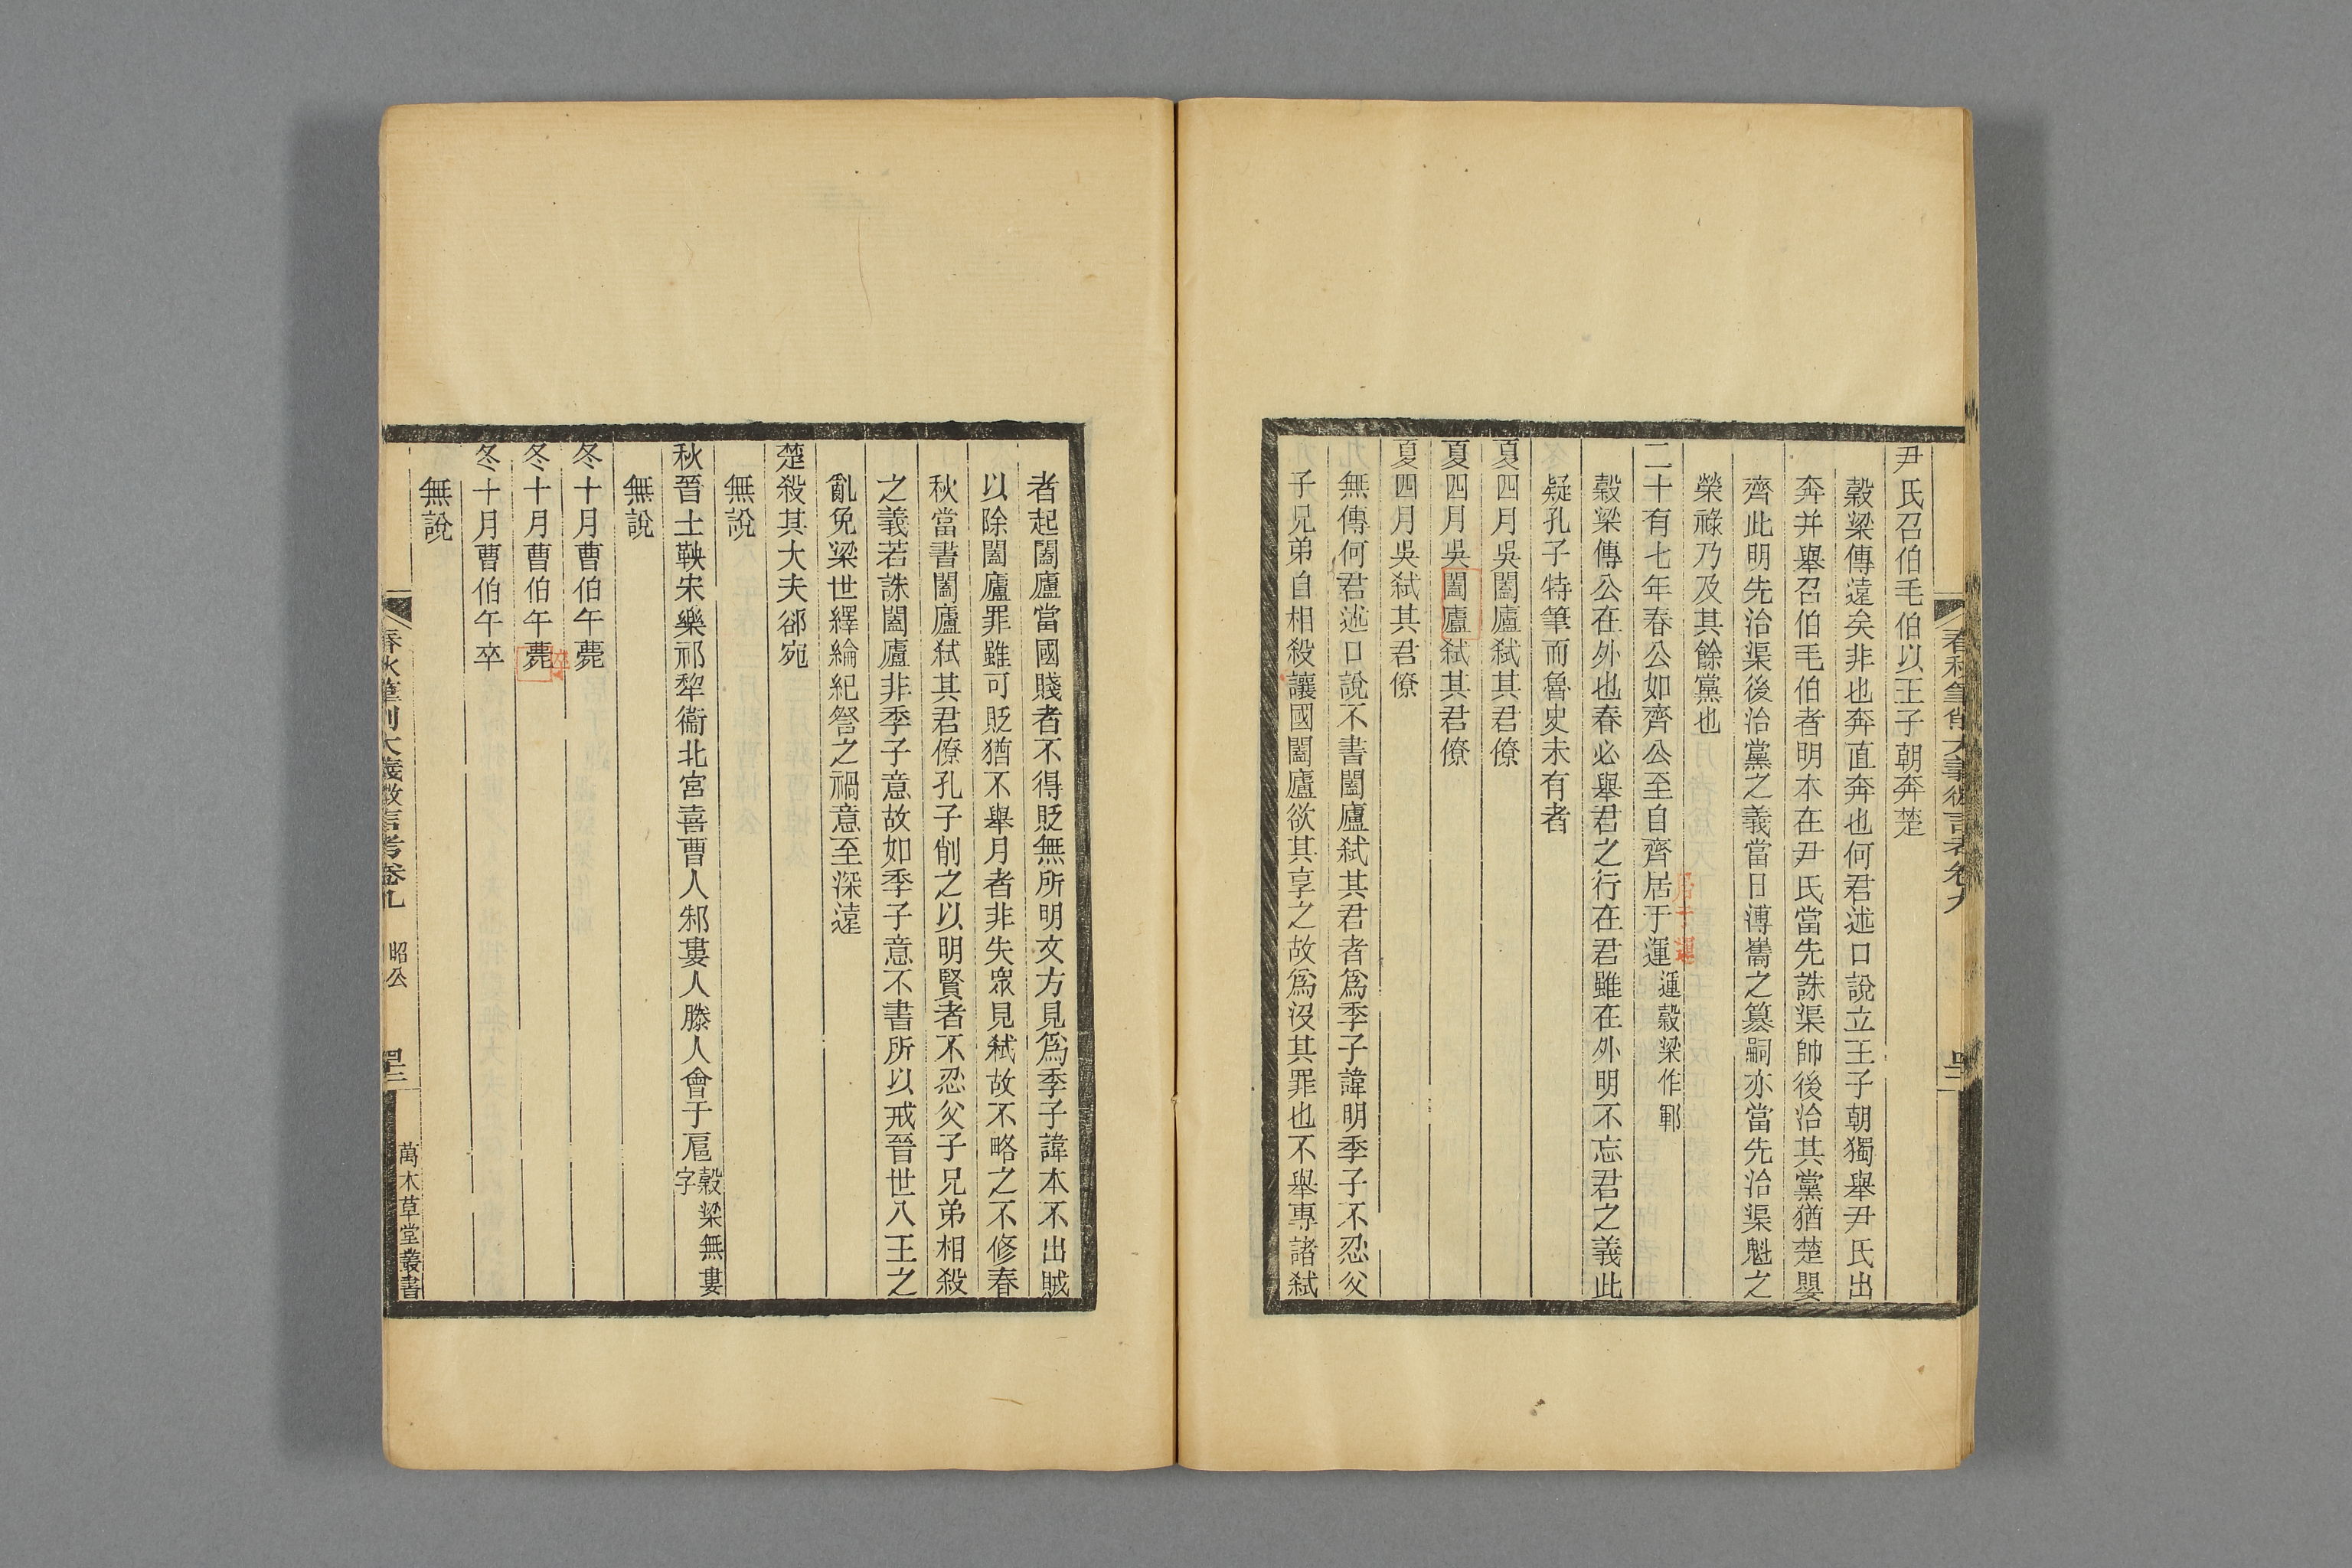 春秋筆削大義微言考卷九
尹氏召伯毛伯以王子朝奔楚
穀梁傳遠矣非也奔直奔也何君述口說立王子朝獨舉尹氏出
奔并舉召伯毛伯者明本在尹氏當先誅渠帥後治其黨猶楚嬰
齊此明先治渠後治黨之義當日溥嵩之篡嗣亦當先治渠魁之
榮祿乃及其餘黨也
二十有七年春公如齊公至自齊居于運運穀梁作鄆
居于運
穀梁傳公在外也春必舉君之行在君雖在外明不忘君之義此
疑孔子特筆而魯史未有者
夏四月吳闔廬弒其君僚
夏四月吳闔廬弒其君僚
夏四月吳弒其君僚
無傳何君述口說不書闔廬弒其君者爲季子諱明季子不忍父
子兄弟自相殺讓國闔廬欲其享之故爲沒其罪也不舉專諸弒
者起闔廬當國賤者不得貶無所明文方見爲季子諱本不出賊
以除闔廬罪雖可貶猶不舉月者非失衆見弒故不略之不修春
秋當書闔廬弒其君僚孔子削之以明賢者不忍父子兄弟相殺
之義若誅闔廬非季子意故如季子意不書所以戒晉世八王之
亂免梁世繹綸紀詧之禍意至深遠
楚殺其大夫郤宛
無說
秋晉士鞅宋樂祁犂衞北宮喜曹人邾婁人滕人會于扈穀梁無婁
字
無說
冬十月曹伯午薨
冬十月曹伯午薨
卒
冬十月曹伯午卒
無說
春秋筆削大義微言考卷九
昭公
萬木草堂叢書